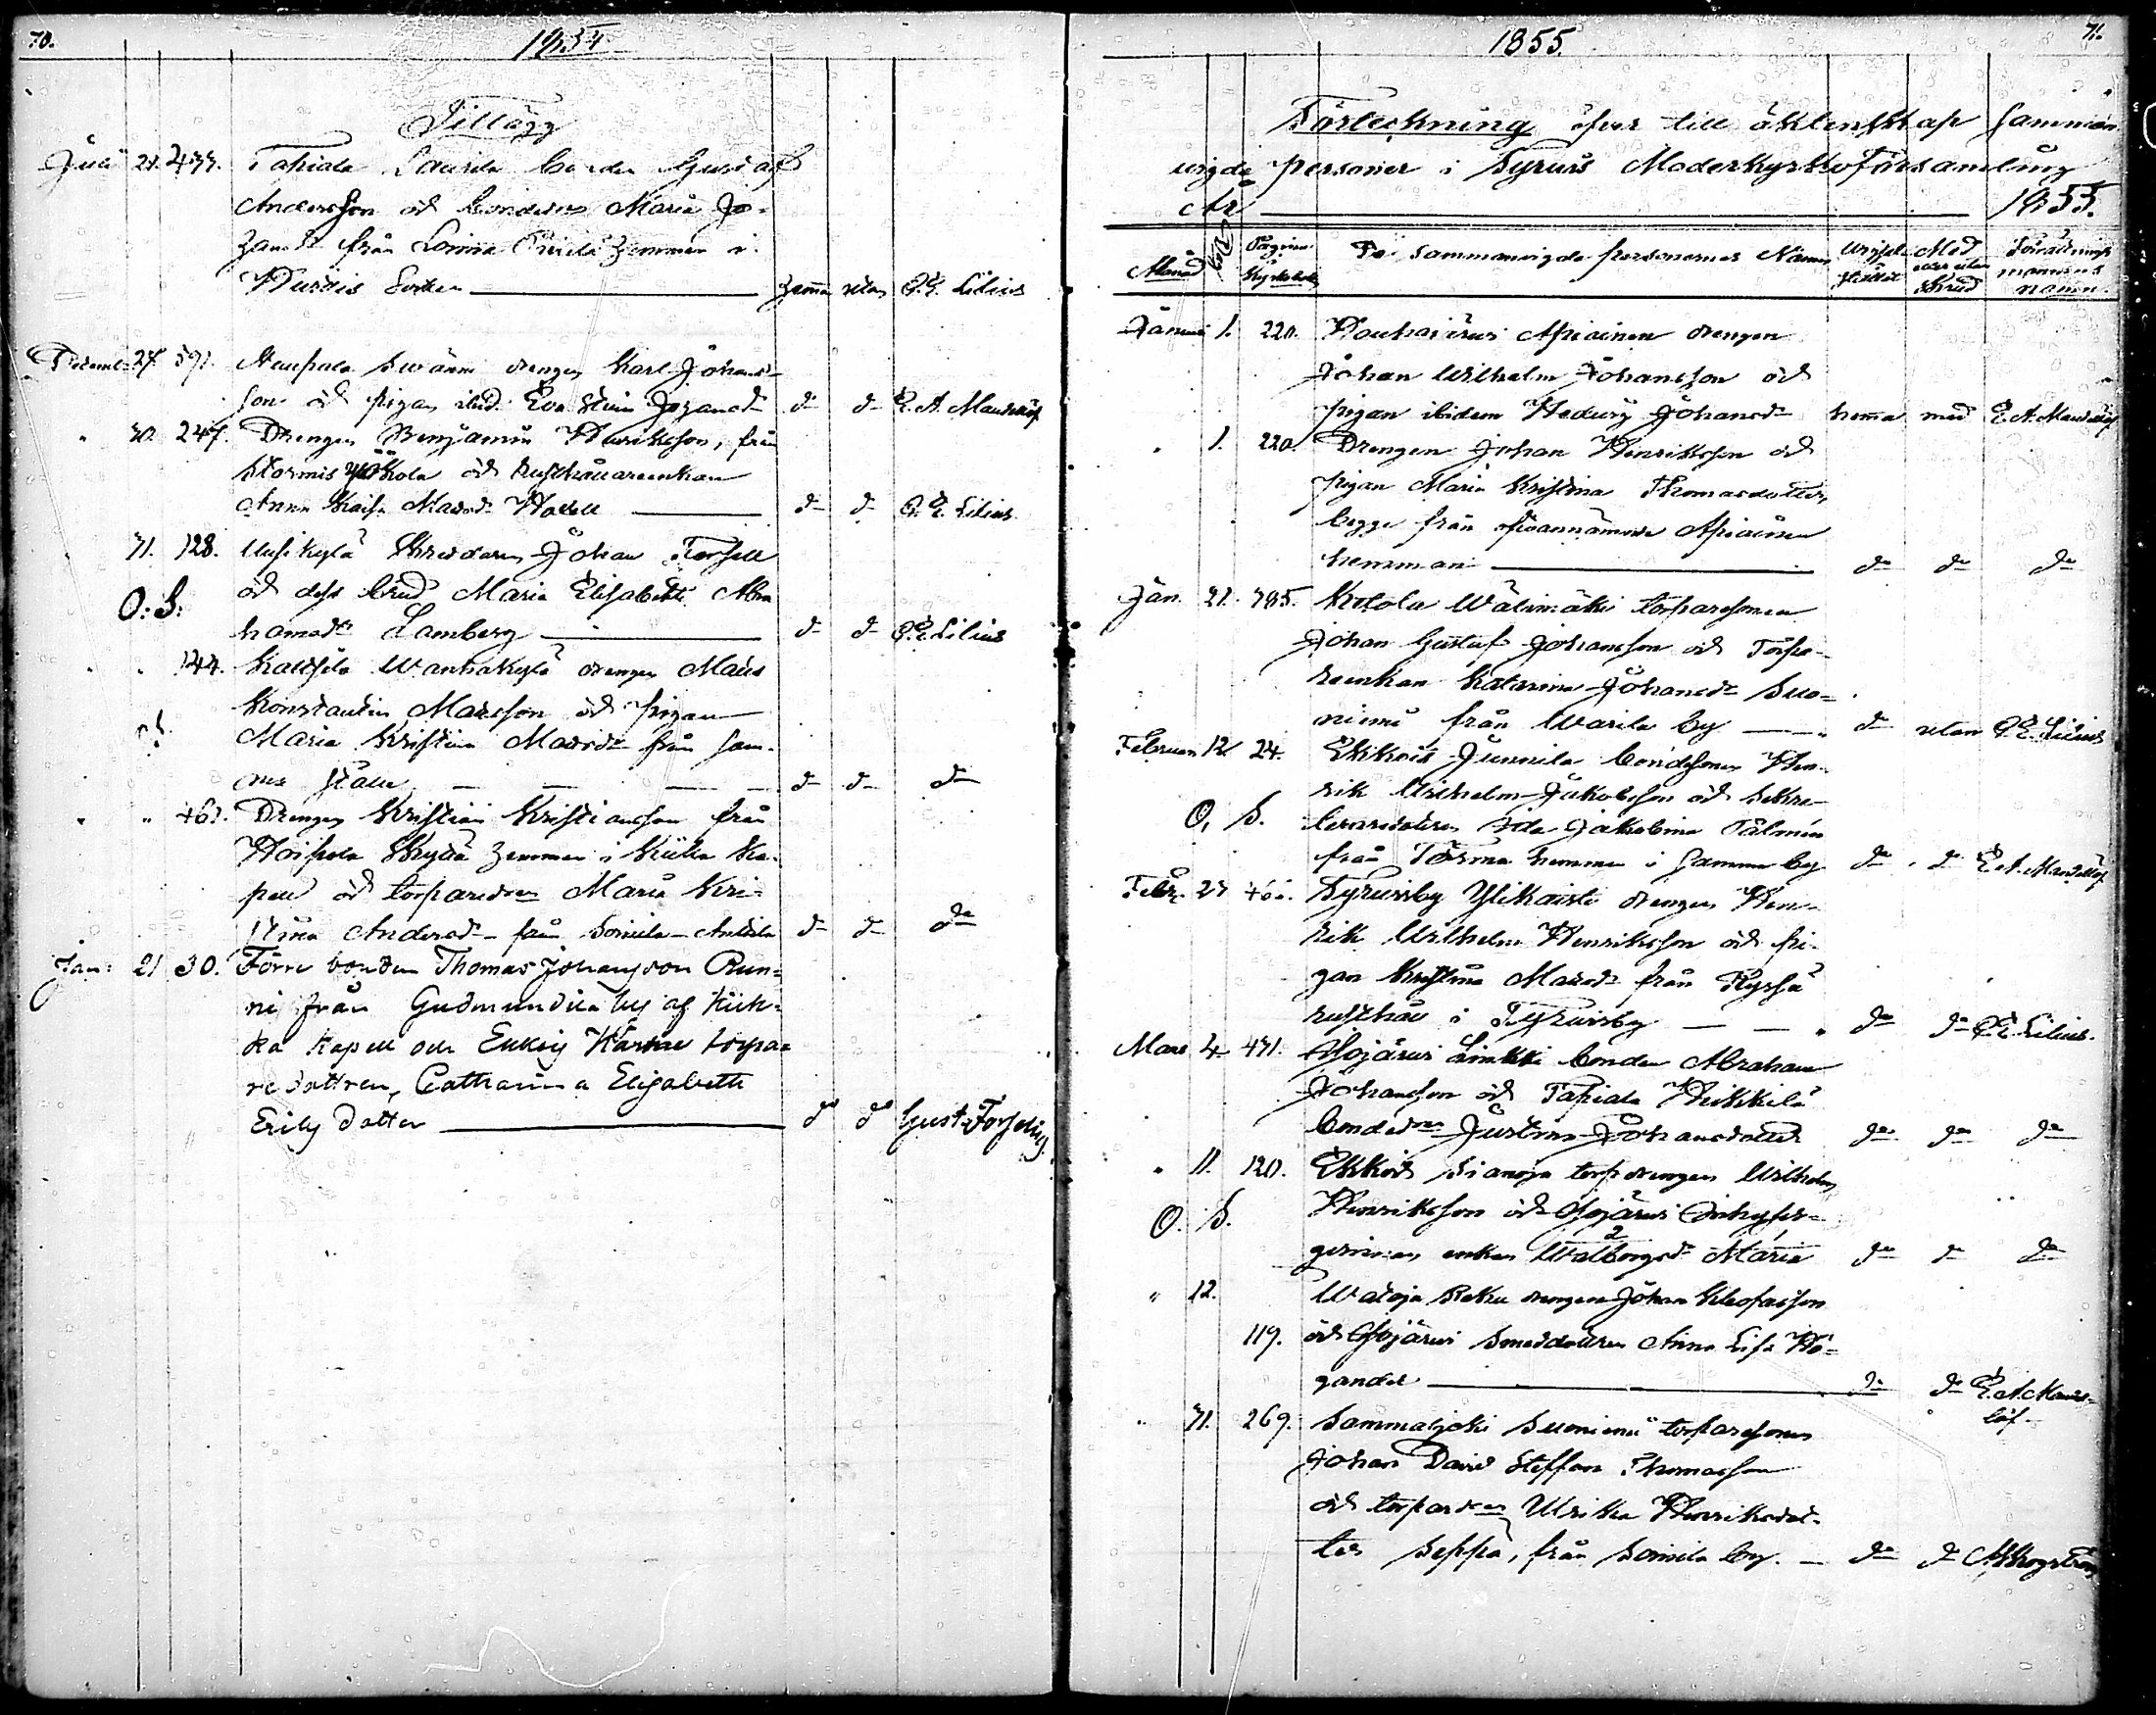 70.
1854
Tillägg
Juli 21. 433. Tapiala Laurila bonden Gustaf
Andersson och bondedr Maria Jo-
hansdr från Zemman i
Socken hemma utan P. E. Lilius
Decemb. 27. 591. Kaupala Swärm drengen Karl Johans-
son och pigan ibid. Eva Stina Johansdr do do E. A. Mandellöf
" 30. 247. Drengen Benjamin Henriksson, från
Stormis Yli Kola och rusthållareenkan
Anna Kaisa Matsdr do do P. E. Lilius
31. 128. Uusikylä Skreddaren Johan Forsell
O: S: och dess brud Maria Elisabeth Abra
hamsdr Lamberg do do P. E. Lilius
" " 144. Wanhakylä drengen Mats
Konstantin Matsson och pigan
Maria Kristina Matsdr från sam-
ma ställe do do do
" " 461. Drengen Kristian Kristiansson från
Hoipola Skyttä hemman i Kiikka Ka-
pell och torparedr Maria Kri-
stina Andersdr från Soinila Anttila do do do
Jan: 21 30. Förre bonden Thomas Johansson Run-
ni från Gudmundila by af Kiik-
ka Kapell och Ekkois torpa-
redottren, Catharina Elisabeth
Eriks dotter do do Gust. Forselius
71.
1855.
Förteckning öfver till äktenskap samman
wigde personer i Tyrvis Moderkyrko Församling
År 1855.
Månad Pag. i Kyrkobok De sammanvigde personernes Namn Wigsel stället Med eller utan Skrud Förrättnings mannens namn.
Januari 1. 220. Houhajärvi Apiainen drengen
Johan Wilhelm Johansson och
pigan ibidem Hedwig Johansdr hemma med E. A. Mandellöf
" 1. 220. Drengen Johan Henriksson och
pigan Maria Kristina Thomasdotter,
begge från ofvannämnde Apiainen
hemman do do do
Jan. 21. 385. Ketola Wälimäki torparesonen
Johan Gustaf Johansson och Torpa-
reenkan Katarina Johansdr Suo-
niemi från Warila by do utan P. E. Lilius
Februari 12 24. Ekkois Junnila bondsonen Hen-
rik Wilhelm Jakobsson och
O. S. Ida Jakobina Palmin
från Torma hemman i samma by do do E. A. Mandellöf
Febr. 23 Tyrvisby Ylikaisti drengen Hen-
rik Wilhelm Henriksson och pi-
gan Kristina Matsdr från
rusthåll i Tyrvisby do do P. E. Lilius.
Mars 4 431. Illojärvi Linkki bonden Abraham
Johansson och Tapiala Heikkilä
bondedr Justina Johansdotter do do do
" 11. 120. Ekkois Sianoja torp drengen Wilhelm
O. S. Henriksson och Illojärvi Inhyses-
gerinnan, enkan Walborgsdr Maria do do do
" 12. Watoja Reku drengen Johan Kleofasson
119. och Illojärvi smeddottren Anna Lisa Hö-
gander do do E. A. Mandel-
löf
" 31. 269. Sammaljoki Suoniemi torparesonen
Johan David Steffan Thomasson
och torparedr Ulrika Henriksdot-
ter Seppä, från Soinila by. do do Skogström